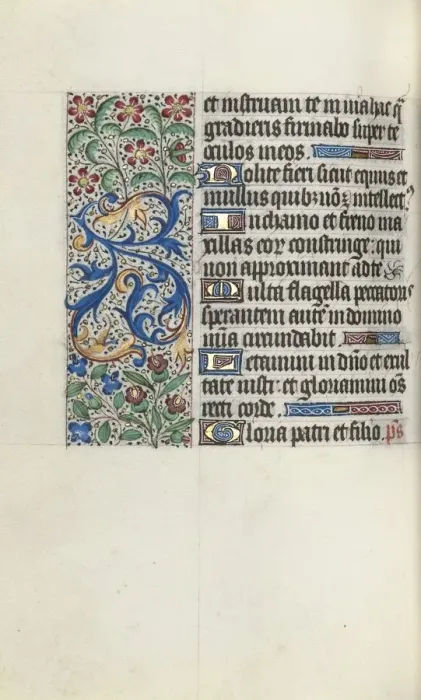 et instruam te in via hac q̄
gradieris firmabo super te
oculos meos.
Nolite fieri sicut equus et
mullus quibꝫ nō ē intellect⁹
In chamo et freno ma
xillas eoꝝ constringe: qui
non approximant ad te
Multa flagella peccatoris
sperantem autē in domino
mīa circundabit.
Letamini in dn̄o et exul
tate iusti: et gloriamini oēs
recti corde.
Gloria patri et filio. ps̄